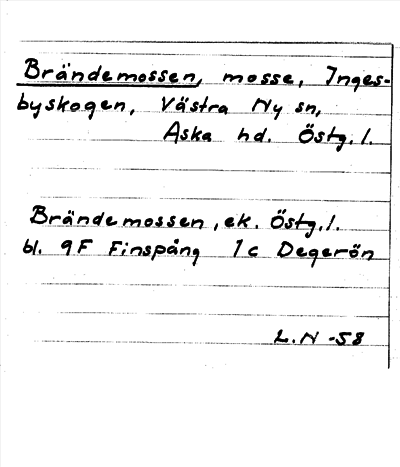 Brändemossen, mosse, Inges-
byskogen, Västra Ny sn,
Aska hd. Östg.l.
Brändemossen, ek. Östg.l.
bl. 9F Finspång 1c Degerön
L.N -58